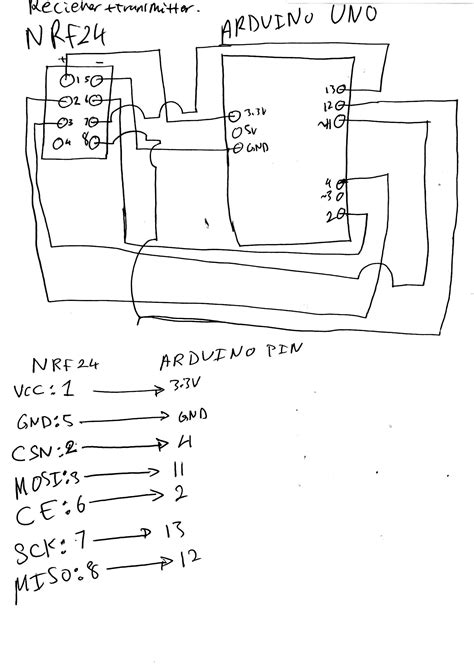 Reciever + transmitter.
NRF24 ARDUINO UNO
+ -
1 5
2 6
3 7
4 8
3.3V
5V
GND
13
12
~11
4
~3
2
NRF24 ARDUINO PIN
VCC:1 → 3.3V
GND:5 → GND
CSN:2 → 4
MOSI:3 → 11
CE:6 → 2
SCK:7 → 13
MISO:8 → 12